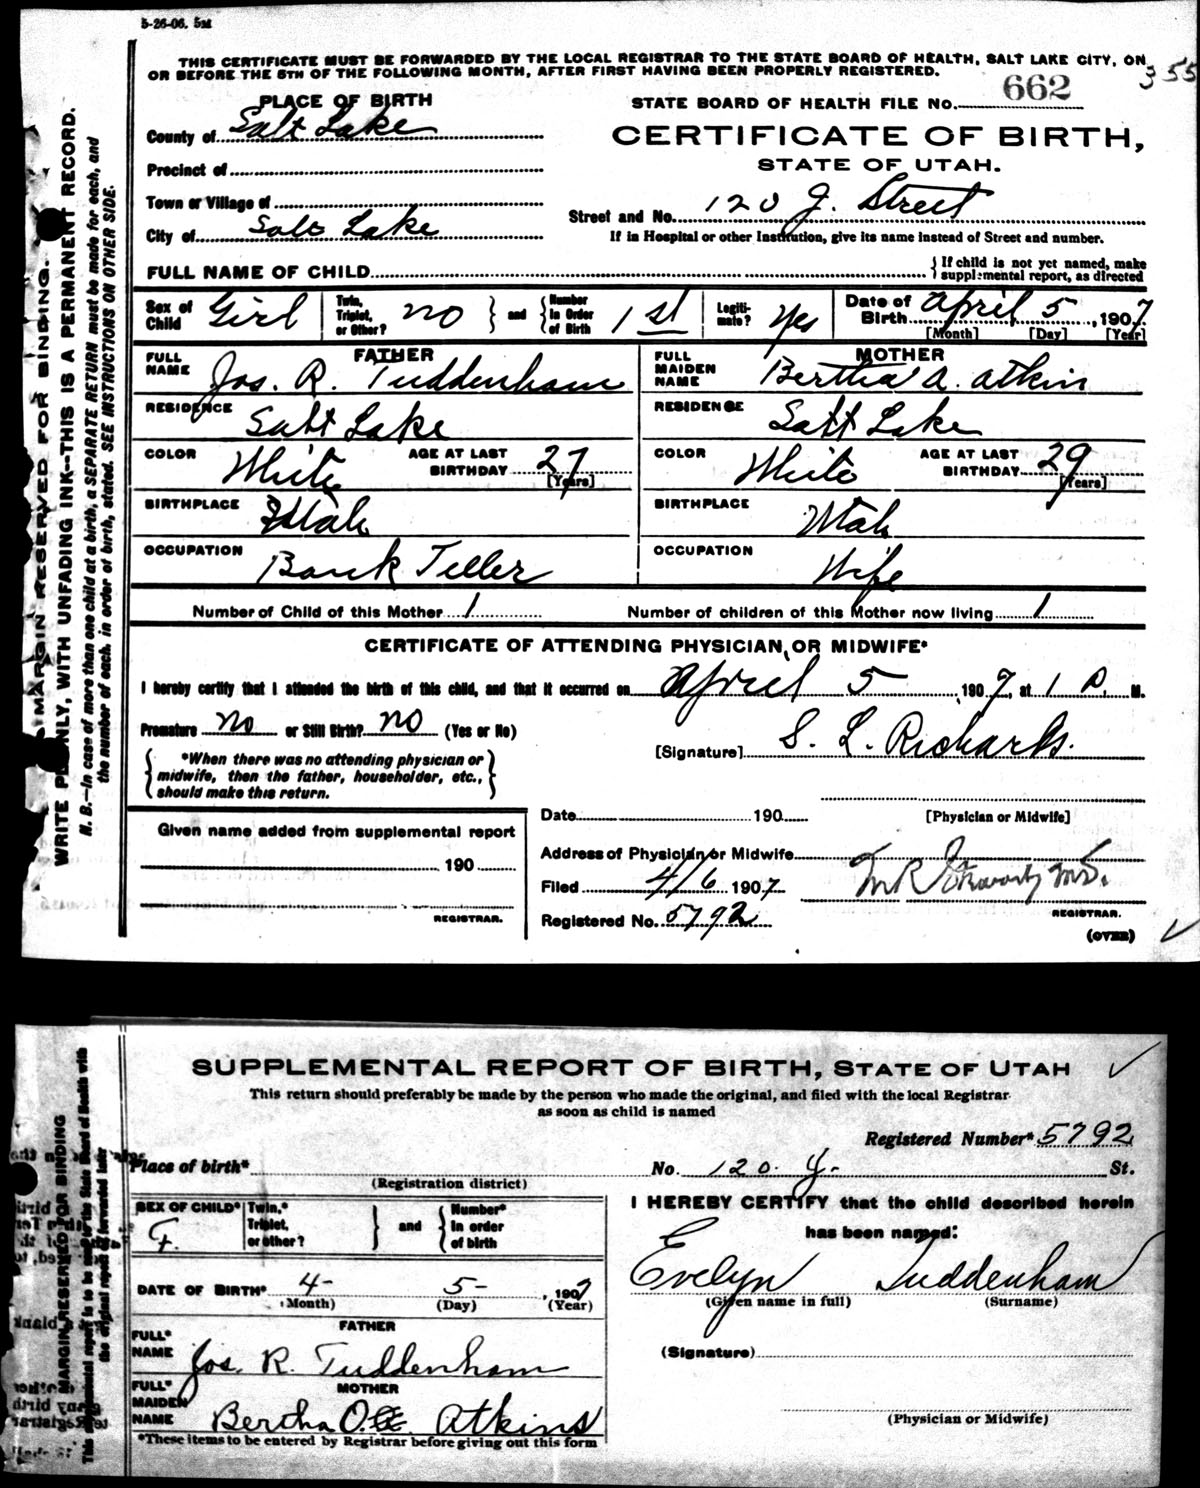 5-26-06. 5M
THIS CERTIFICATE MUST BE FORWARDED BY THE LOCAL REGISTRAR TO THE STATE BOARD OF HEALTH, SALT LAKE CITY, ON
OR BEFORE THE 5TH OF THE FOLLOWING MONTH, AFTER FIRST HAVING BEEN PROPERLY REGISTERED.
355
MARGIN RESERVED FOR BINDING.
WRITE PLAINLY, WITH UNFADING INK--THIS IS A PERMANENT RECORD.
N. B.--In case of more than one child at a birth, a SEPARATE RETURN must be made for each, and
the number of each, in order of birth, stated. SEE INSTRUCTIONS ON OTHER SIDE.
PLACE OF BIRTH
STATE BOARD OF HEALTH FILE NO. 662
County of Salt Lake
CERTIFICATE OF BIRTH,
Precinct of
STATE OF UTAH.
Town or Village of
Street and No. 120 J. Street
City of Salt Lake
If in Hospital or other Institution, give its name instead of Street and number.
FULL NAME OF CHILD
{ If child is not yet named, make
supplemental report, as directed
Sex of Child Girl
Twin, Triplet, or Other? No } and { Number In Order of Birth 1st
Legiti- mate? Yes
Date of Birth April 5, 1907
[Month] [Day] [Year]
FATHER
FULL NAME Jos. R. Tuddenham
MOTHER
FULL MAIDEN NAME Bertha A. Atkin
RESIDENCE Salt Lake
RESIDENCE Salt Lake
COLOR White AGE AT LAST BIRTHDAY 27 [Years]
COLOR White AGE AT LAST BIRTHDAY 29 [Years]
BIRTHPLACE Utah
BIRTHPLACE Utah
OCCUPATION Bank Teller
OCCUPATION Wife
Number of Child of this Mother 1
Number of children of this Mother now living 1
CERTIFICATE OF ATTENDING PHYSICIAN, OR MIDWIFE*
I hereby certify that I attended the birth of this child, and that it occurred on April 5, 1907, at 1 P. M.
Premature No or Still Birth? No (Yes or No)
[Signature] S. L. Richards.
{ *When there was no attending physician or
midwife, then the father, householder, etc.,
should make this return. }
[Physician or Midwife]
Given name added from supplemental report
Date 190
190
Address of Physician or Midwife
Filed 4/6 1907
M.D.
REGISTRAR.
REGISTRAR.
Registered No. 5792
(OVER)
SUPPLEMENTAL REPORT OF BIRTH, STATE OF UTAH
This return should preferably be made by the person who made the original, and filed with the local Registrar
as soon as child is named
MARGIN RESERVED FOR BINDING
Registered Number* 5792
Place of birth*
(Registration district)
No. 120 J. St.
SEX OF CHILD* F.
Twin,* Triplet, or other? } and { Number* in order of birth
I HEREBY CERTIFY that the child described herein
has been named:
Evelyn Tuddenham
(Given name in full) (Surname)
DATE OF BIRTH* 4- 5-, 1907
(Month) (Day) (Year)
FATHER
FULL* NAME Jos. R. Tuddenham
(Signature)
MOTHER
FULL* MAIDEN NAME Bertha Atkins
(Physician or Midwife)
*These items to be entered by Registrar before giving out this form